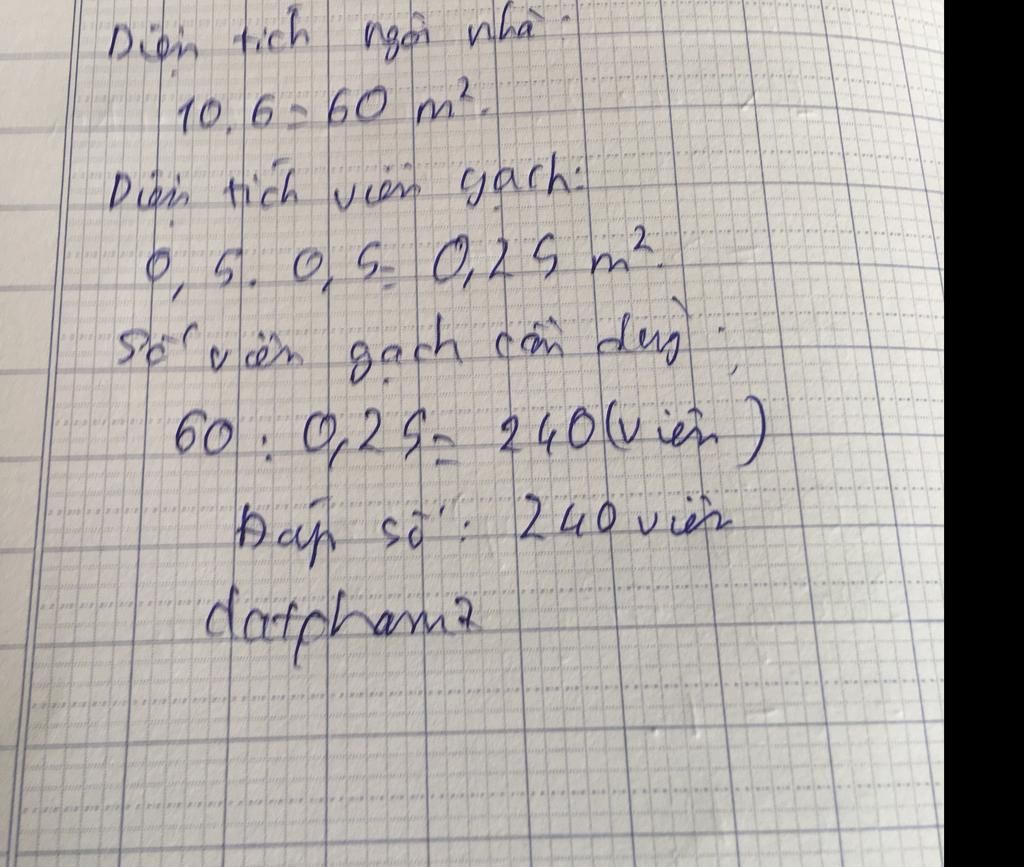 Diện tích ngôi nhà:
10.6=60 m².
Diện tích viên gạch:
0,5.0,5=0,25 m².
Số viên gạch cần dùng:
60:0,25=240(viên)
Đáp số: 240 viên
datpham7